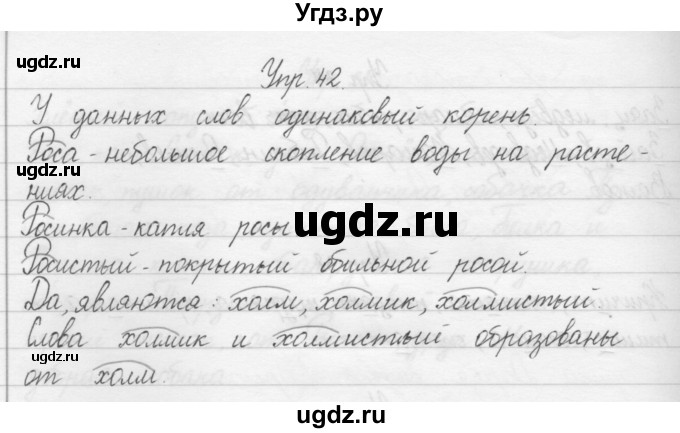 Угдз.ру
ugdz.ru
ugdz.ru
Упр. 42.
У данных слов одинаковый корень.
Роса - небольшое скопление воды на расте-
ниях.
Росинка - капля росы
ugdz.ru
Росистый - покрытый боильной росой
ugdz.ru
ugdz.ru
Да, являются: холм, холмик, холмистый
Слова холмик и холмистый образованы
от холм.
ugdz.ru
ugdz.ru
ugdz.ru